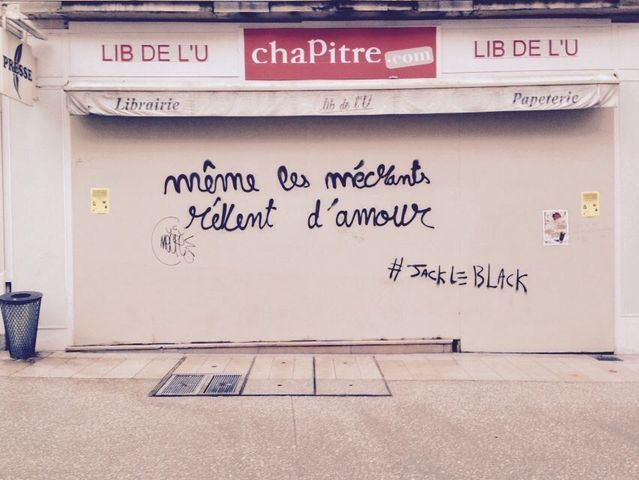 PRESSE
LIB DE L'U
chaPitre.com
LIB DE L'U
Librairie
lib de l'U
Papeterie
même les méchants
rêvent d'amour
#JACKLEBLACK